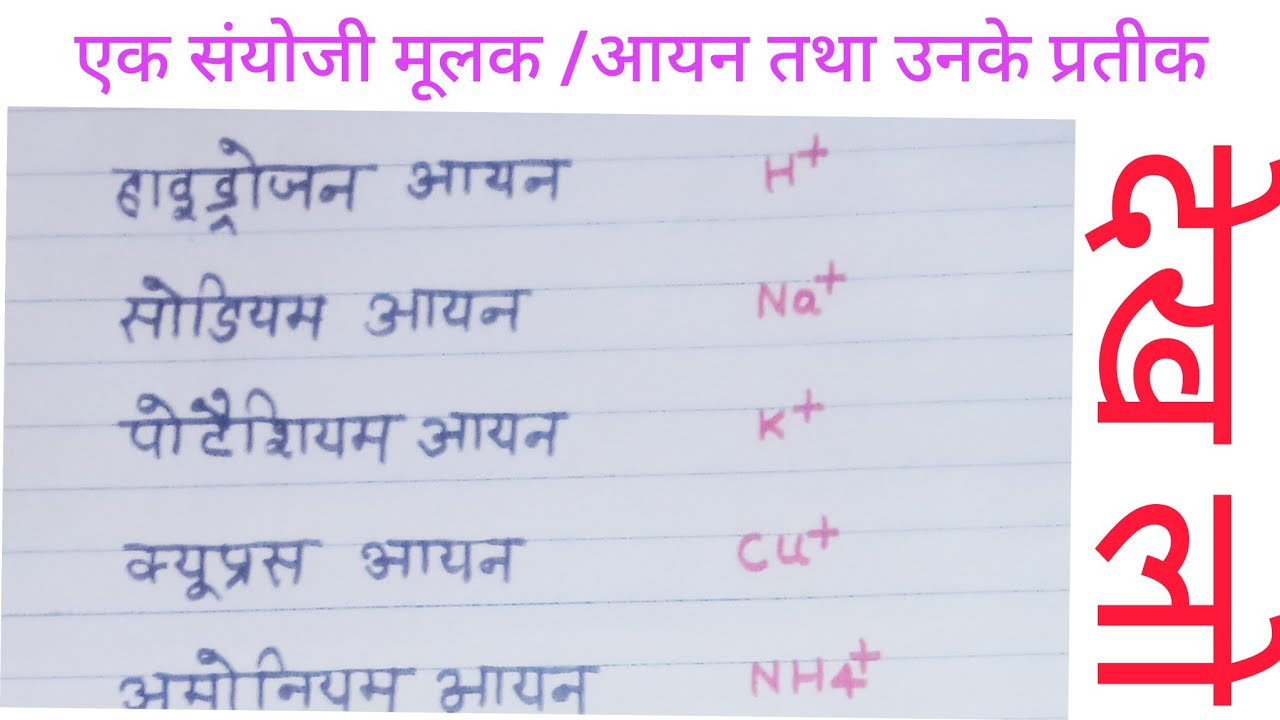 एक संयोजी मूलक /आयन तथा उनके प्रतीक
हाइड्रोजन आयन H⁺
सोडियम आयन Na⁺
पोटैशियम आयन K⁺
क्यूप्रस आयन Cu⁺
अमोनियम आयन NH4⁺
देख लो